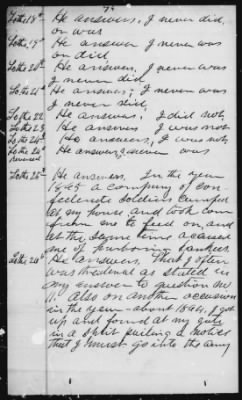 To the 18th He answers, I never did,
or was
To the 19th He answers I never was
or did
To the 20th He answers, I never was
I never did
To the 21st He answers; I never was
I never did,
To the 22 He answers, I did not,
To the 23 He answers I was not
To the 24th He answers, I was not,
To the 24th He answers, never was
To the 25th He answers, In the year
1865 a company of con-
federate Soldiers camped
at my house, and took corn
from me to feed on and
at the same time accused
me of harboring Yankees.
To the 26th He answers, That I often
was threatened as stated in
my answer to question No
11. Also on another occasion
in the year about 1864, I got
up and found at my gate
in a split pailing a notice
that I must go into the army